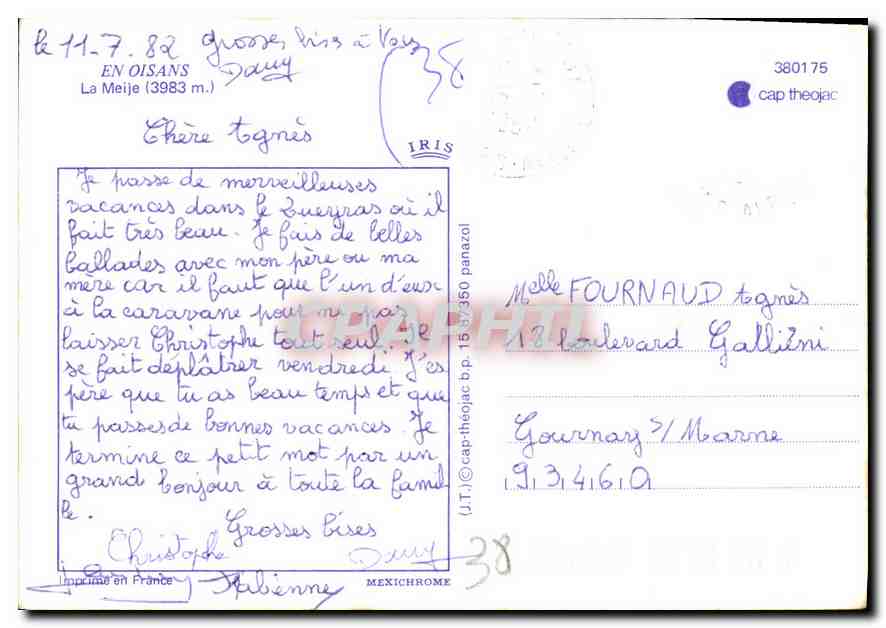 le 11-7.82 grosses bises à Vous
Dany
EN OISANS
La Meije (3983 m.)
38
IRIS
380175
cap theojac
Chère Agnès
Je passe de merveilleuses
vacances dans le Queyras où il
fait très beau. Je fais de belles
ballades avec mon père ou ma
mère car il faut que l'un d'eux
à la caravane pour ne pas
laisser Christophe tout seul. Je
se fait déplâtrer vendredi. J'es
père que tu as beau temps et que
tu passes de bonnes vacances. Je
termine ce petit mot par un
grand bonjour à toute la famil
le.
Grosses bises
Christophe Dany
Fabienne
38
Imprimé en France
MEXICHROME
(J.T.) © cap-théojac b.p. 15 87350 panazol
Melle FOURNAUD Agnès
18 boulevard Galliéni
Gournay s/ Marne
93460
CPAPHIL